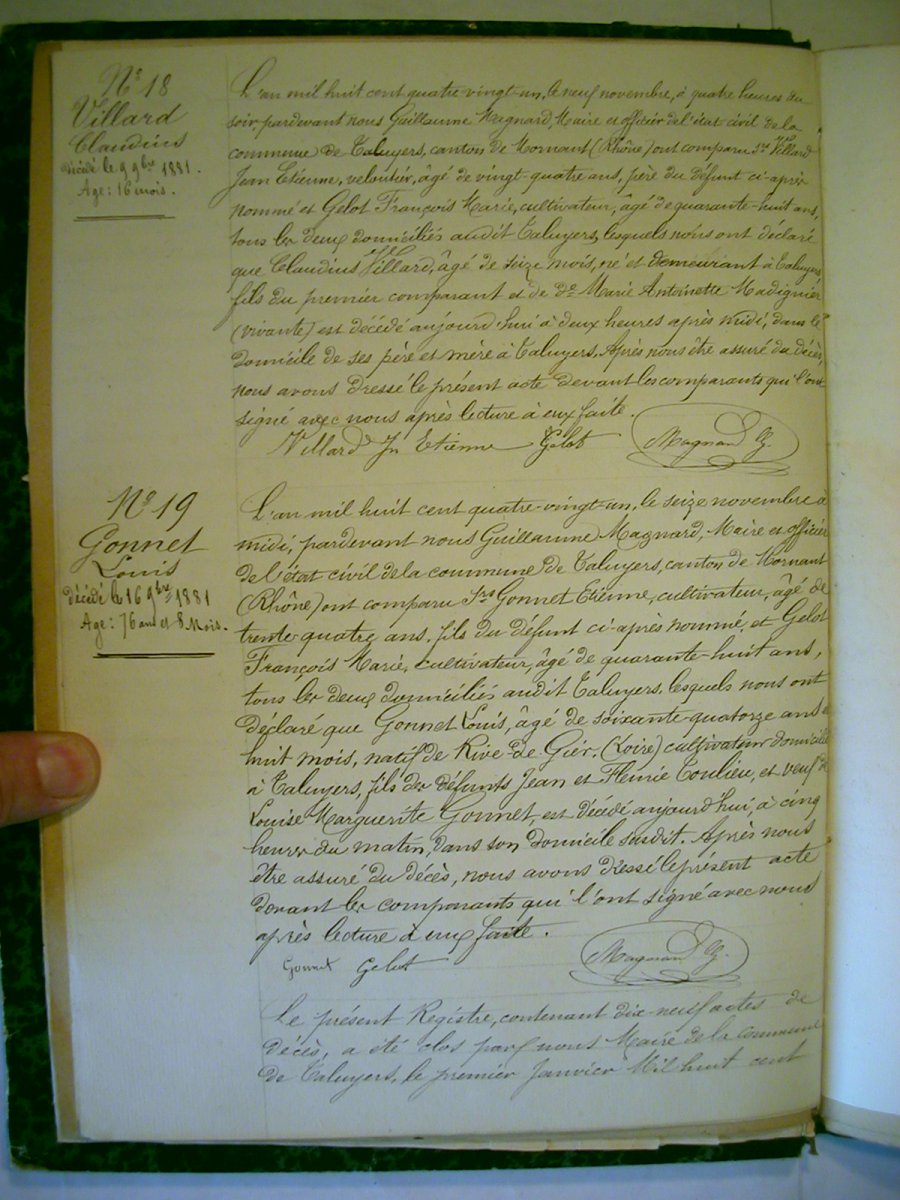 Nº 18
Villard
Claudius
décédé le 9 9bre 1881.
Age: 16 mois.
L'an mil huit cent quatre-vingt-un, le neuf novembre, à quatre heures du
soir, pardevant nous Guillaume Magnard, Maire et officier de l'état civil de la
commune de Taluyers, canton de Mornant (Rhône) ont comparu Srs Villard
Jean Etienne, veloutier, âgé de vingt-quatre ans, père du défunt ci-après
nommé et Gelot François Marie, cultivateur, âgé de quarante-huit ans,
tous les deux domiciliés audit Taluyers, lesquels nous ont déclaré
que Claudius Villard, âgé de seize mois, né et demeurant à Taluyers,
fils du premier comparant et de de Marie Antoinette Madignier
(vivante) est décédé aujourd'hui à deux heures après midi, dans le
domicile de ses père et mère à Taluyers. Après nous être assuré du décès,
nous avons dressé le présent acte devant les comparants qui l'ont
signé avec nous après lecture à eux faite.
Villard Jn Etienne Gelot Magnard G.
Nº 19
Gonnet
Louis
décédé le 16 9bre 1881
Age: 76 ans et 8 Mois.
L'an mil huit cent quatre-vingt-un, le seize novembre à
midi, pardevant nous Guillaume Magnard, Maire et officier
de l'état civil de la commune de Taluyers, canton de Mornant
(Rhône) ont comparu Srs Gonnet Etienne, cultivateur, âgé de
trente-quatre ans, fils du défunt ci-après nommé, et Gelot
François Marie, cultivateur, âgé de quarante-huit ans,
tous les deux domiciliés audit Taluyers, lesquels nous ont
déclaré que Gonnet Louis, âgé de soixante-quatorze ans et
huit mois, natif de Rive de Gier, (Loire) cultivateur domicilié
à Taluyers, fils des défunts Jean et Fleurie Toulieu, et veuf de
Louise Marguerite Gonnet, est décédé aujourd'hui, à cinq
heures du matin, dans son domicile susdit. Après nous
être assuré du décès, nous avons dressé le présent acte
devant les comparants qui l'ont signé avec nous
après lecture à eux faite.
Gonnet Gelot Magnard G.
Le présent Registre, contenant dix-neuf actes de
décès, a été clos par nous Maire de la commune
de Taluyers, le premier Janvier Mil huit cent